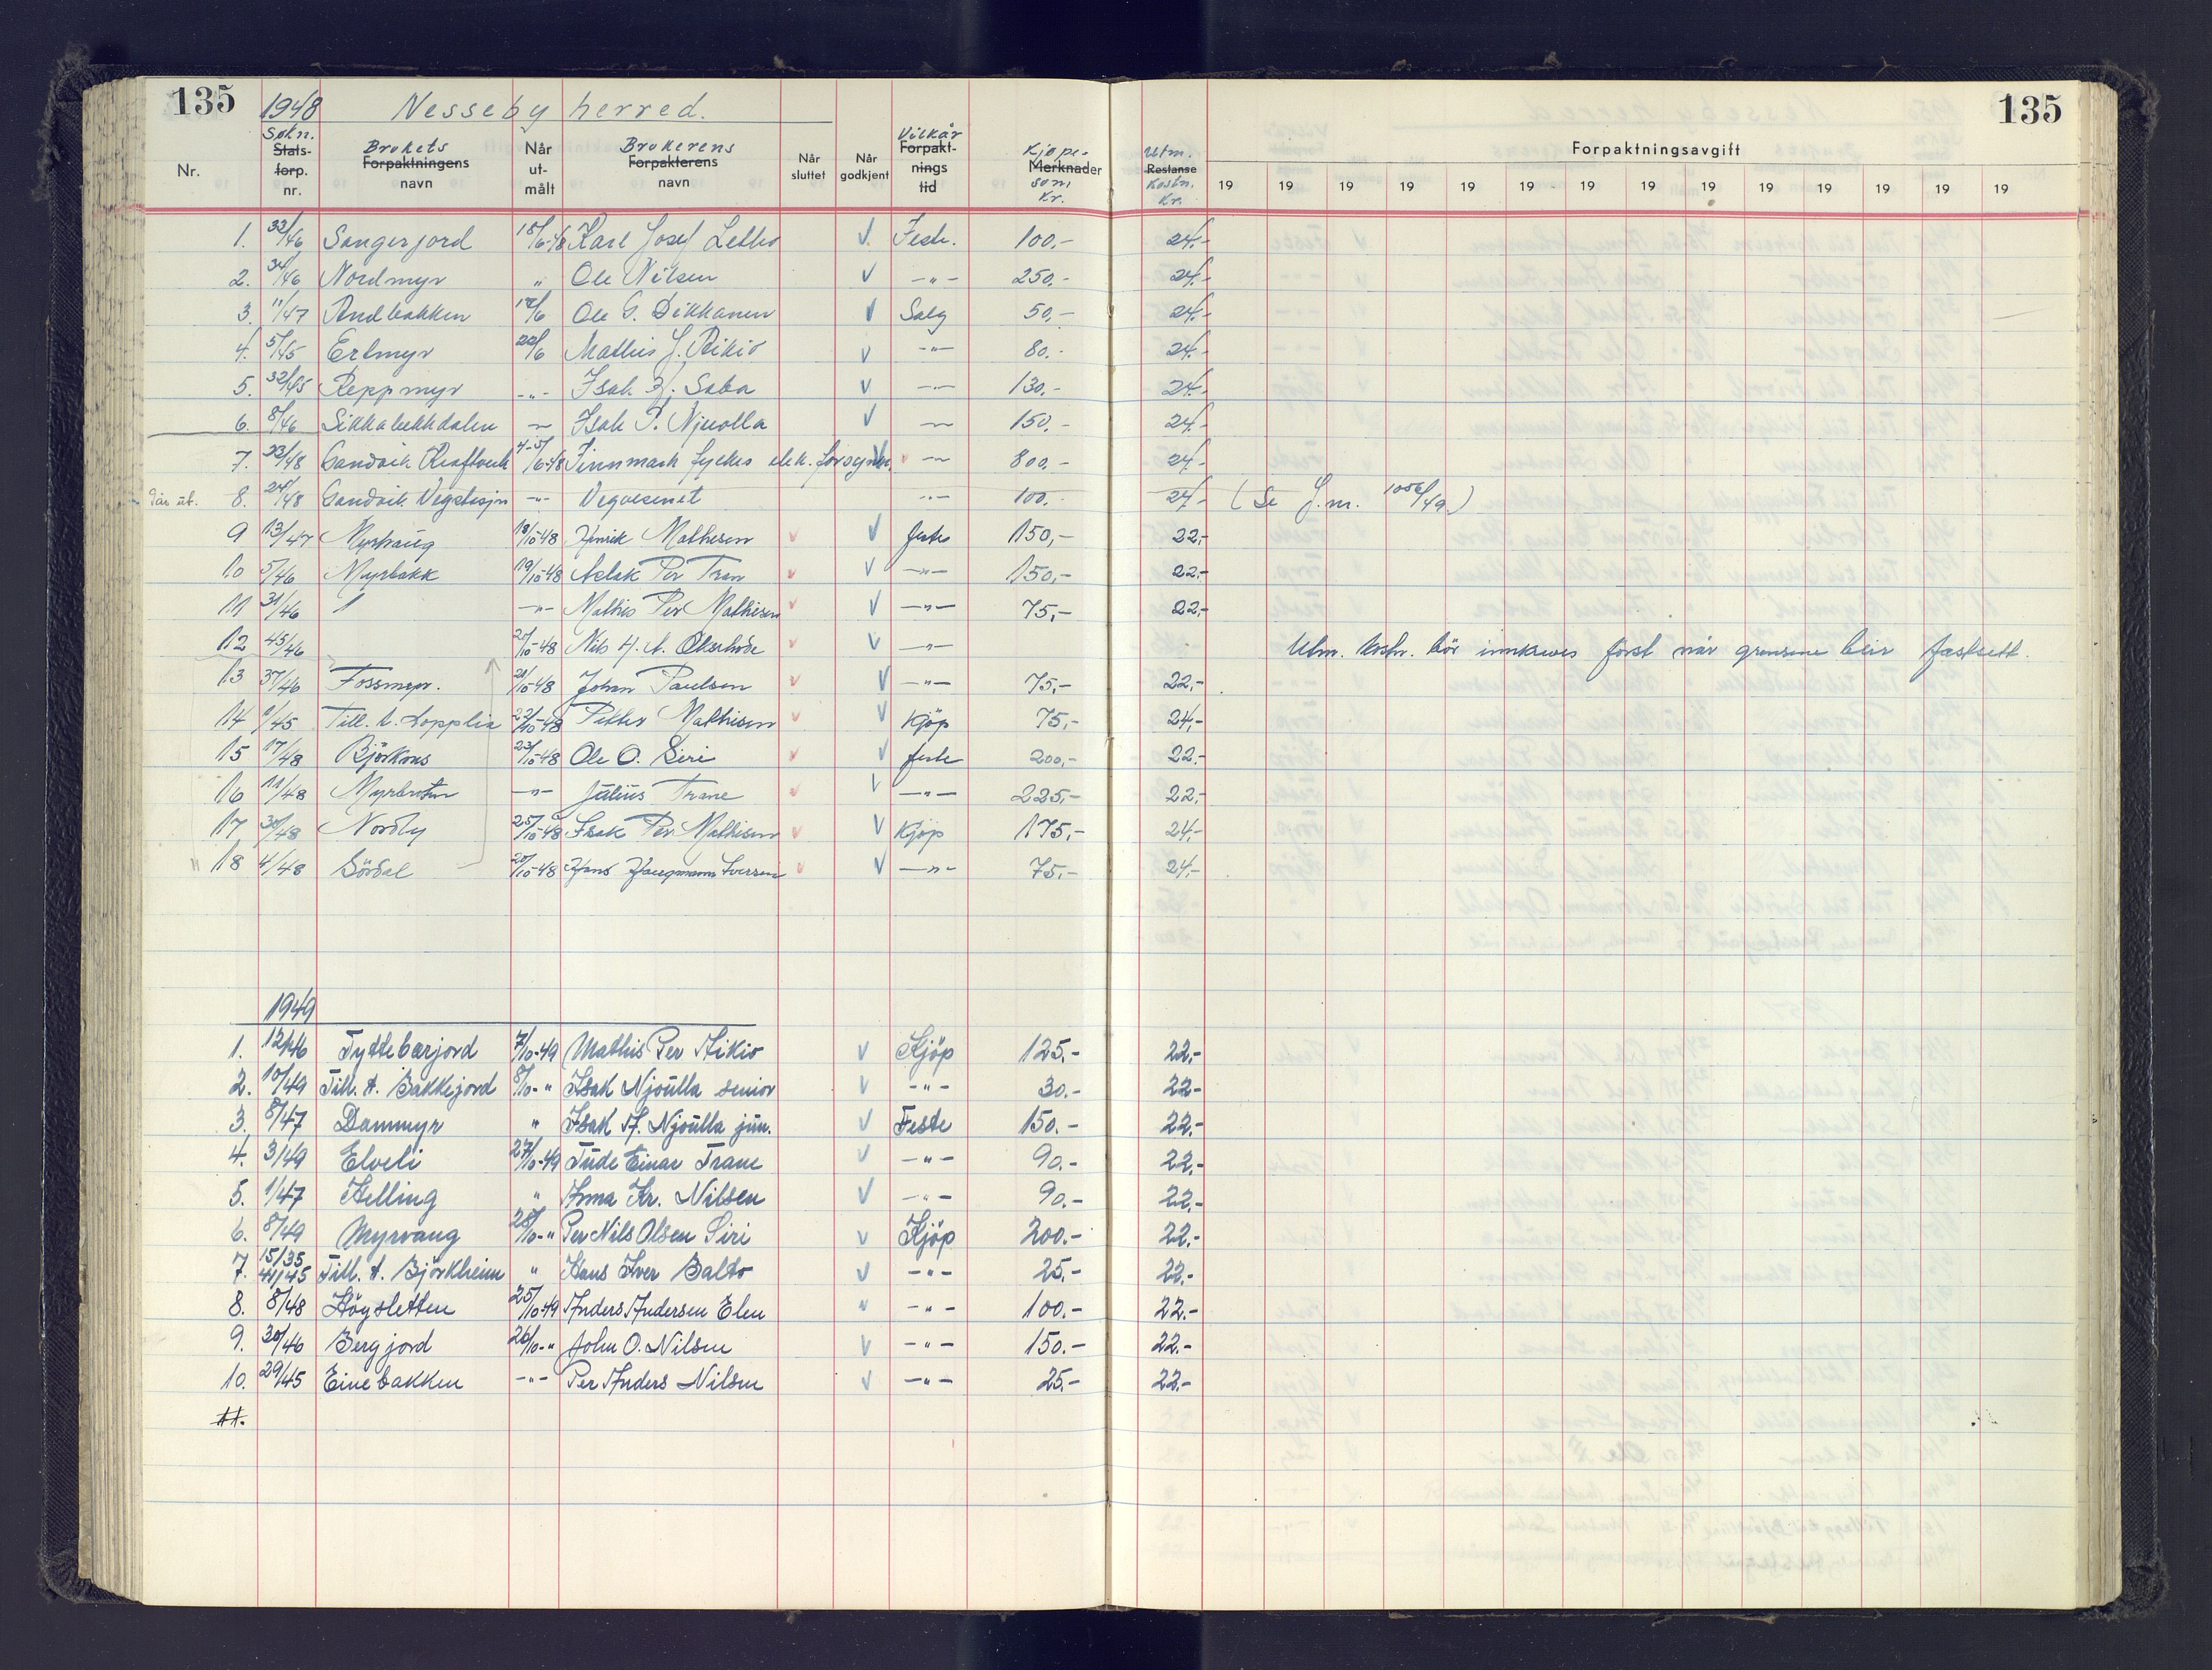 135 1948 Nesseby herred. 135
Nr. Søkn. Stats-forp. nr. Brukets Forpaktningens navn Når ut-målt Brukerens Forpakterens navn Når sluttet Når godkjent Vilkår Forpakt-nings tid Kjøpe-sum Kr. Merknader Utm. Kostn. Kr. Restanse Forpaktningsavgift
19 19 19 19 19 19 19 19 19 19 19 19 19 19
1. 32/46 Sangerjord 15/6-48 Karl Josef Letto V. Feste. 100,- 24.-
2. 34/46 Nordmyr " Ole Nilsen V -"- 250.- 24.-
3. 11/47 Andbakken 17/6 Ole G. Dikkanen V Salg 50,- 24.-
4. 5/45 Erlmyr 22/6 Mathis J. Aikio V -"- 80.- 24.-
5. 32/45 Reppmyr -"- Isak Saba V -"- 130.- 24.-
6. 8/46 Sikkabekkdalen -"- Isak P. Njuolla V -"- 150.- 24.-
7. 23/48 Gandvik Kraftverk 4-5/6-48 Finnmark fylkes elek. forsyning V -"- 800.- 24.-
Går ut. 8. 24/48 Gandvik Vegstasjn -"- Vegvesenet -"- 100.- 24.- (Se J.nr. 1056/49.)
9 13/47 Myrhaug 18/10-48 Henrik Mathisen V feste 150,- 22,-
10 5/46 Myrbakk 19/10-48 Aslak Per Tran V -"- 150,- 22,-
11 31/46 -"- Mathis Per Mathisen V -"- 75,- 22,-
12 45/46 21/10-48 Nils H. A. V -"- Utm. kostn. bör innkreves först når grensene blir fastsett.
13 37/46 Fossmyr. 21/10-48 Johan Paulsen V -"- 75,- 22,-
14 1/45 Till. t. Lopplia 22/10-48 Petter Mathisen V Kjöp 75,- 24,-
15 17/48 Björknes 23/10-48 Ole O. Siri V feste 200,- 22.-
16 11/48 Myrbotn -"- Julius Trane V -"- 225,- 22,-
17 30/48 Nordly 25/10-48 Isak Per Mathisen V Kjöp 175,- 24,-
" 18 4/48 Sördal 20/10-48 Hans Haugmann Iversen V -"- 75,- 24,-
1949
1. 12/46 Tyttebærjord 7/10-49 Mathis Per Aikio V Kjöp 125.- 22.-
2. 10/49 Till. t. Bakkejord 8/10-" Isak Njoulla senior V -"- 30.- 22.-
3. 8/47 Dammyr " Isak A. Njoulla jun. V Feste 150.- 22.-
4. 3/49 Elveli 27/10-49 Tude Einar Trane V -"- 90.- 22.-
5. 1/47 Helling " Anna Kr. Nilsen V -"- 90.- 22.-
6. 8/49 Myrvang 28/10-" Per Nils Olsen Siri V Kjöp 200.- 22.-
7. 15/35 41/45 Till. t. Björkheim " Hans Iver Balto V -"- 25.- 22.-
8. 8/48 Høysletten 25/10-49 Anders Andersen Elen " -"- 100.- 22.-
9. 30/46 Bergjord 26/10-" John O. Nilsen V -"- 150.- 22.-
10. 29/45 Einebakken -"- Per Anders Nilsen V -"- 25.- 22.-
11.